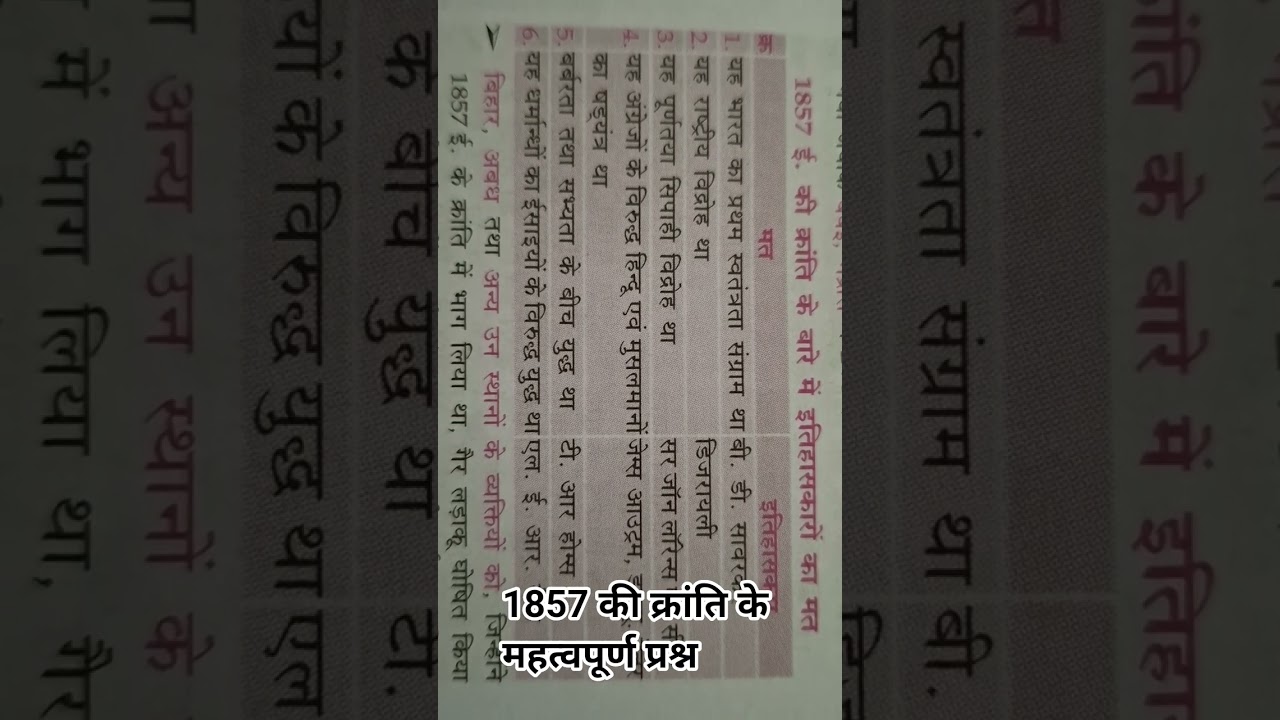 1857 ई. की क्रांति के बारे में इतिहासकारों का मत
क्र मत इतिहासकार
1. यह भारत का प्रथम स्वतंत्रता संग्राम था बी. डी. सावरकर
2. यह राष्ट्रीय विद्रोह था डिजरायली
3. यह पूर्णतया सिपाही विद्रोह था सर जॉन लॉरेन्स
4. यह अंग्रेजों के विरुद्ध हिन्दू एवं मुसलमानों जेम्स आउट्रम,
का षड्यंत्र था
5. बर्बरता तथा सभ्यता के बीच युद्ध था टी. आर होम्स
6. यह धर्मान्धों का ईसाइयों के विरुद्ध युद्ध था एल. ई. आर.
➤ बिहार, अवध तथा अन्य उन स्थानों के व्यक्तियों को, जिन्होंने
1857 ई. के क्रांति में भाग लिया था, गैर लड़ाकू घोषित किया
1857 की क्रांति के
महत्वपूर्ण प्रश्न